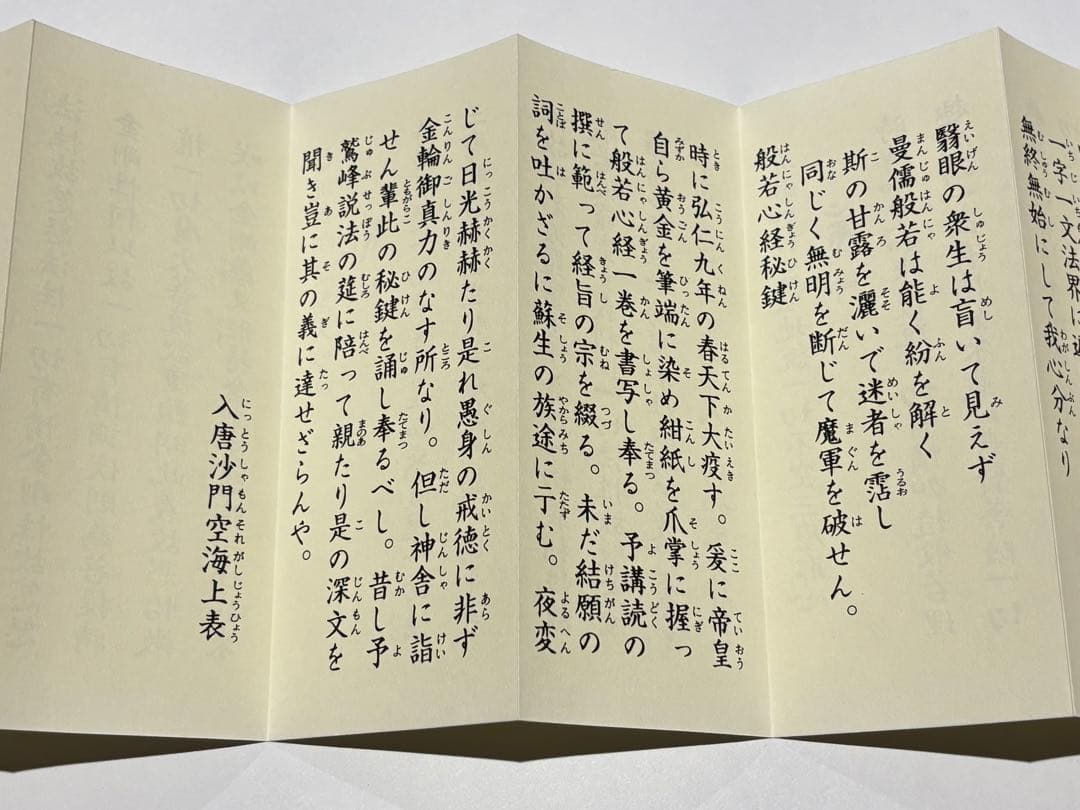 一字一文法界に遍
無終無始にして我心分なり
翳眼の衆生は盲いて見えず
曼儒般若は能く紛を解く
斯の甘露を灑いで迷者を霑し
同じく無明を断じて魔軍を破せん。
般若心経秘鍵
時に弘仁九年の春天下大疫す。爰に帝皇
自ら黄金を筆端に染め紺紙を爪掌に握っ
て般若心経一巻を書写し奉る。予講読の
撰に範って経旨の宗を綴る。未だ結願の
詞を吐かざるに蘇生の族途に亍む。夜変
じて日光赫赫たり是れ愚身の戒徳に非ず
金輪御真力のなす所なり。但し神舎に詣
せん輩此の秘鍵を誦し奉るべし。昔し予
鷲峰説法の筵に陪って親たり是の深文を
聞き豈に其の義に達せざらんや。
入唐沙門空海上表